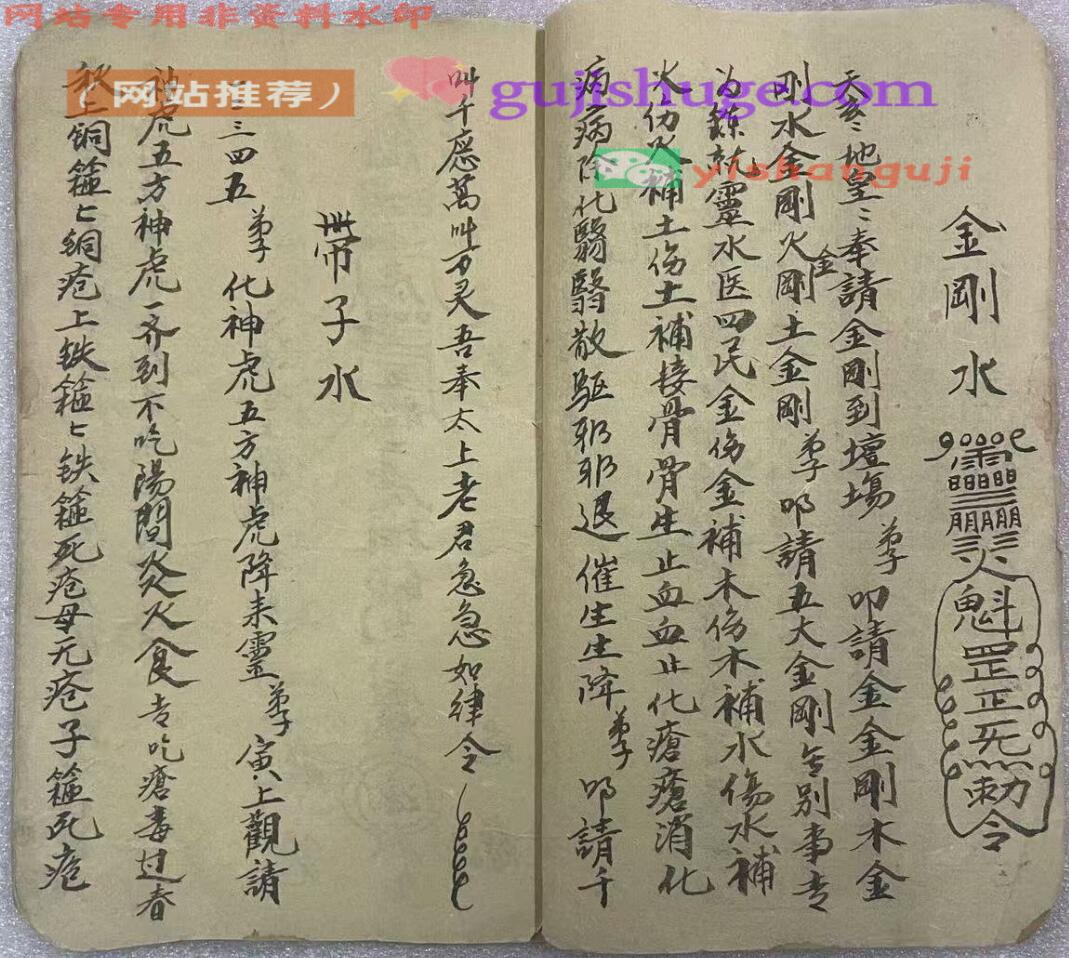 网站专用非资料水印
（网站推荐）
gujishuge.com
yishanguji
金剛水
魁罡正炁勅令
天灵地灵〻奉請金剛到壇場弟子叩請金金剛木金
剛水金剛火金剛土金剛弟子叩請五大金剛無別事专
为鍊就靈水医四民金伤金補木伤木補水傷水補
火伤火補土伤土補接骨骨生止血血止化瘡瘡消化
病病除化翳翳散驱邪邪退催生生降弟子叩請千
叫千應萬叫万灵吾奉太上老君急急如律令
帶子水
一二三四五弟子化神虎五方神虎降来靈弟子寅上觀請
神虎五方神虎一齐到不吃陽間炎火食专吃瘡毒过春
秋上铜箍匕铜疮上铁箍匕铁箍死疮母无疮子箍死疮